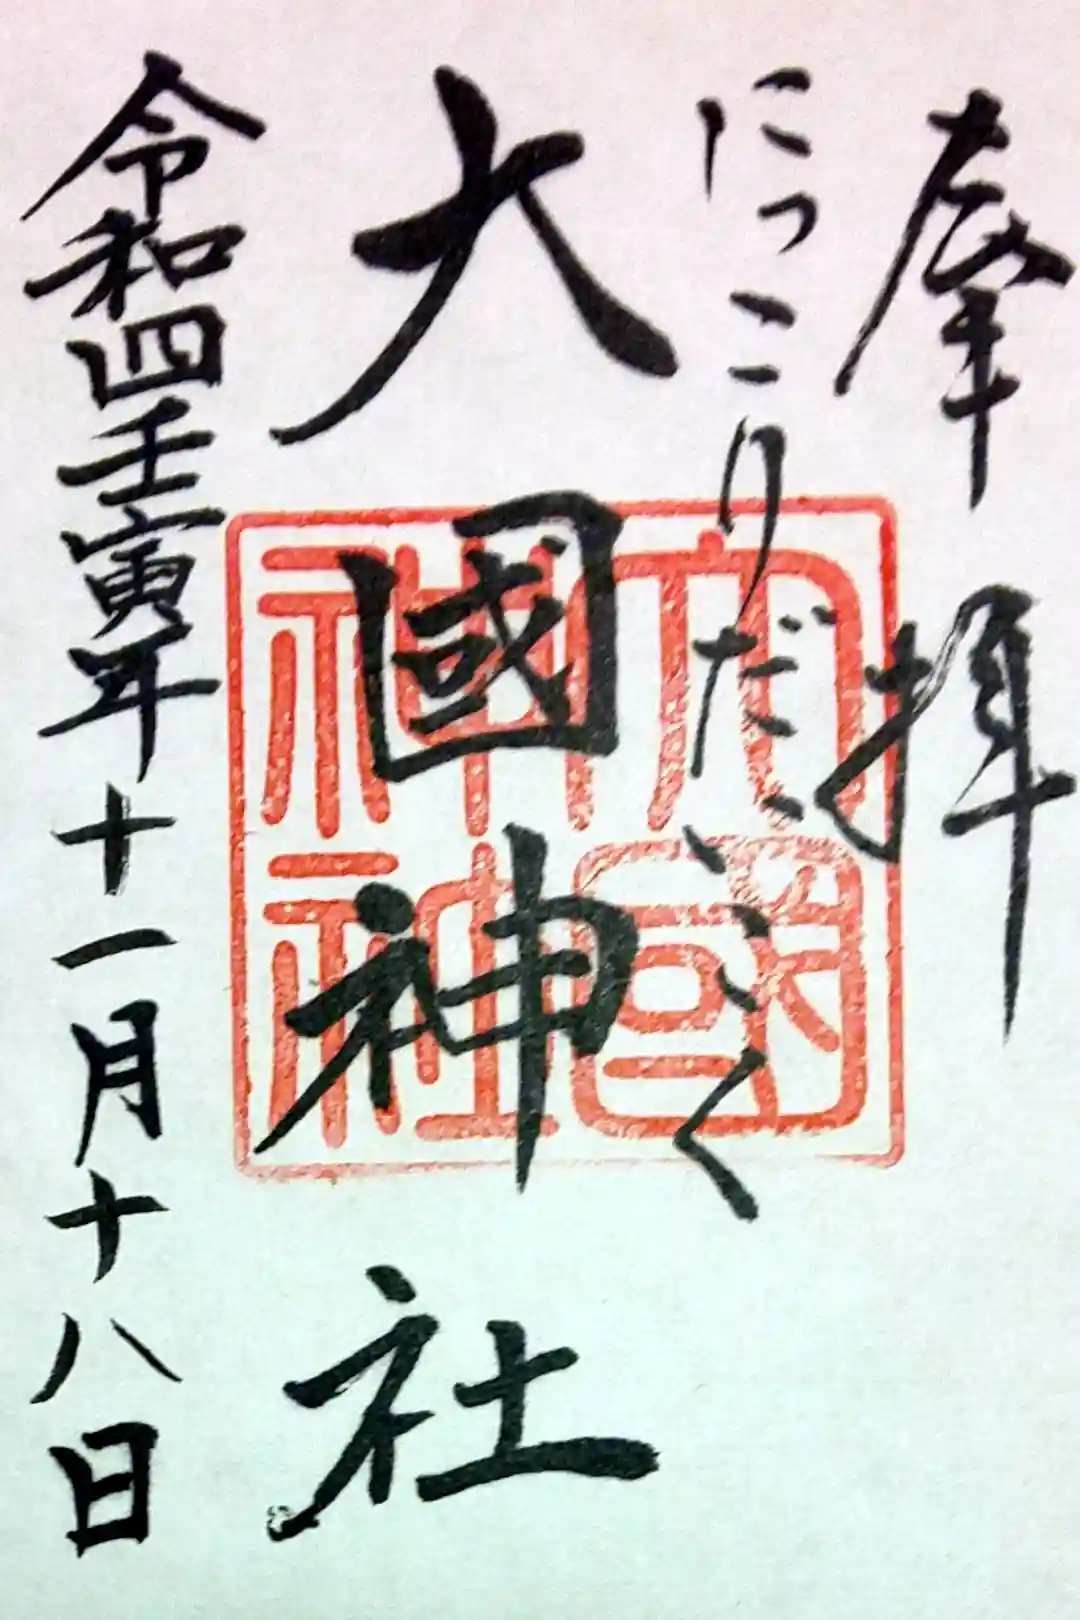 奉拝
にっこりだいこく
大國神社
大國神社
令和四壬寅年十一月十八日